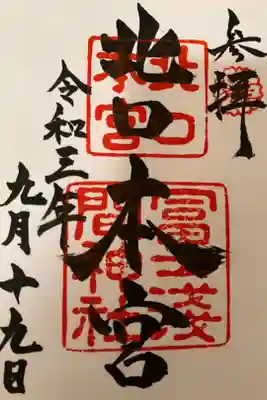 参拝
北口本宮
令和三年
九月十九日
北口
本宮
冨士淺
間神社